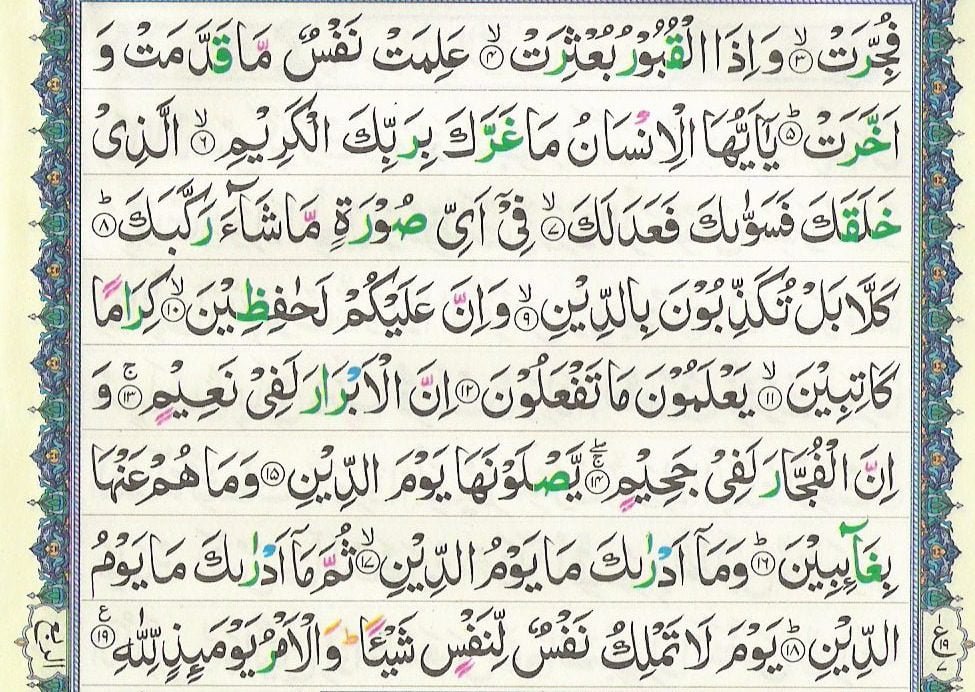 فُجِّرَتْ ۙ﴿۳﴾ وَاِذَا الْقُبُوْرُ بُعْثِرَتْ ۙ﴿۴﴾ عَلِمَتْ نَفْسٌ مَّا قَدَّمَتْ وَ
اَخَّرَتْ ؕ﴿۵﴾ يٰۤاَيُّهَا الْاِنْسَانُ مَا غَرَّكَ بِرَبِّكَ الْكَرِيْمِ ۙ﴿۶﴾ الَّذِیْ
خَلَقَكَ فَسَوّٰىكَ فَعَدَلَكَ ۙ﴿۷﴾ فِیْۤ اَیِّ صُوْرَةٍ مَّا شَآءَ رَكَّبَكَ ؕ﴿۸﴾
كَلَّا بَلْ تُكَذِّبُوْنَ بِالدِّيْنِ ۙ﴿۹﴾ وَاِنَّ عَلَيْكُمْ لَحٰفِظِيْنَ ۙ﴿۱۰﴾ كِرَامًا
كَاتِبِيْنَ ۙ﴿۱۱﴾ يَعْلَمُوْنَ مَا تَفْعَلُوْنَ ﴿۱۲﴾ اِنَّ الْاَبْرَارَ لَفِیْ نَعِيْمٍ ۚ﴿۱۳﴾ وَ
اِنَّ الْفُجَّارَ لَفِیْ جَحِيْمٍ ۚۖ﴿۱۴﴾ يَّصْلَوْنَهَا يَوْمَ الدِّيْنِ ﴿۱۵﴾ وَمَا هُمْ عَنْهَا
بِغَآئِبِيْنَ ؕ﴿۱۶﴾ وَمَاۤ اَدْرٰىكَ مَا يَوْمُ الدِّيْنِ ۙ﴿۱۷﴾ ثُمَّ مَاۤ اَدْرٰىكَ مَا يَوْمُ
الدِّيْنِ ؕ﴿۱۸﴾ يَوْمَ لَا تَمْلِكُ نَفْسٌ لِّنَفْسٍ شَيْئًا ؕ وَالْاَمْرُ يَوْمَئِذٍ لِّلّٰهِ ﴿۱۹﴾ ع
ع ۱۹ ۷
الربع